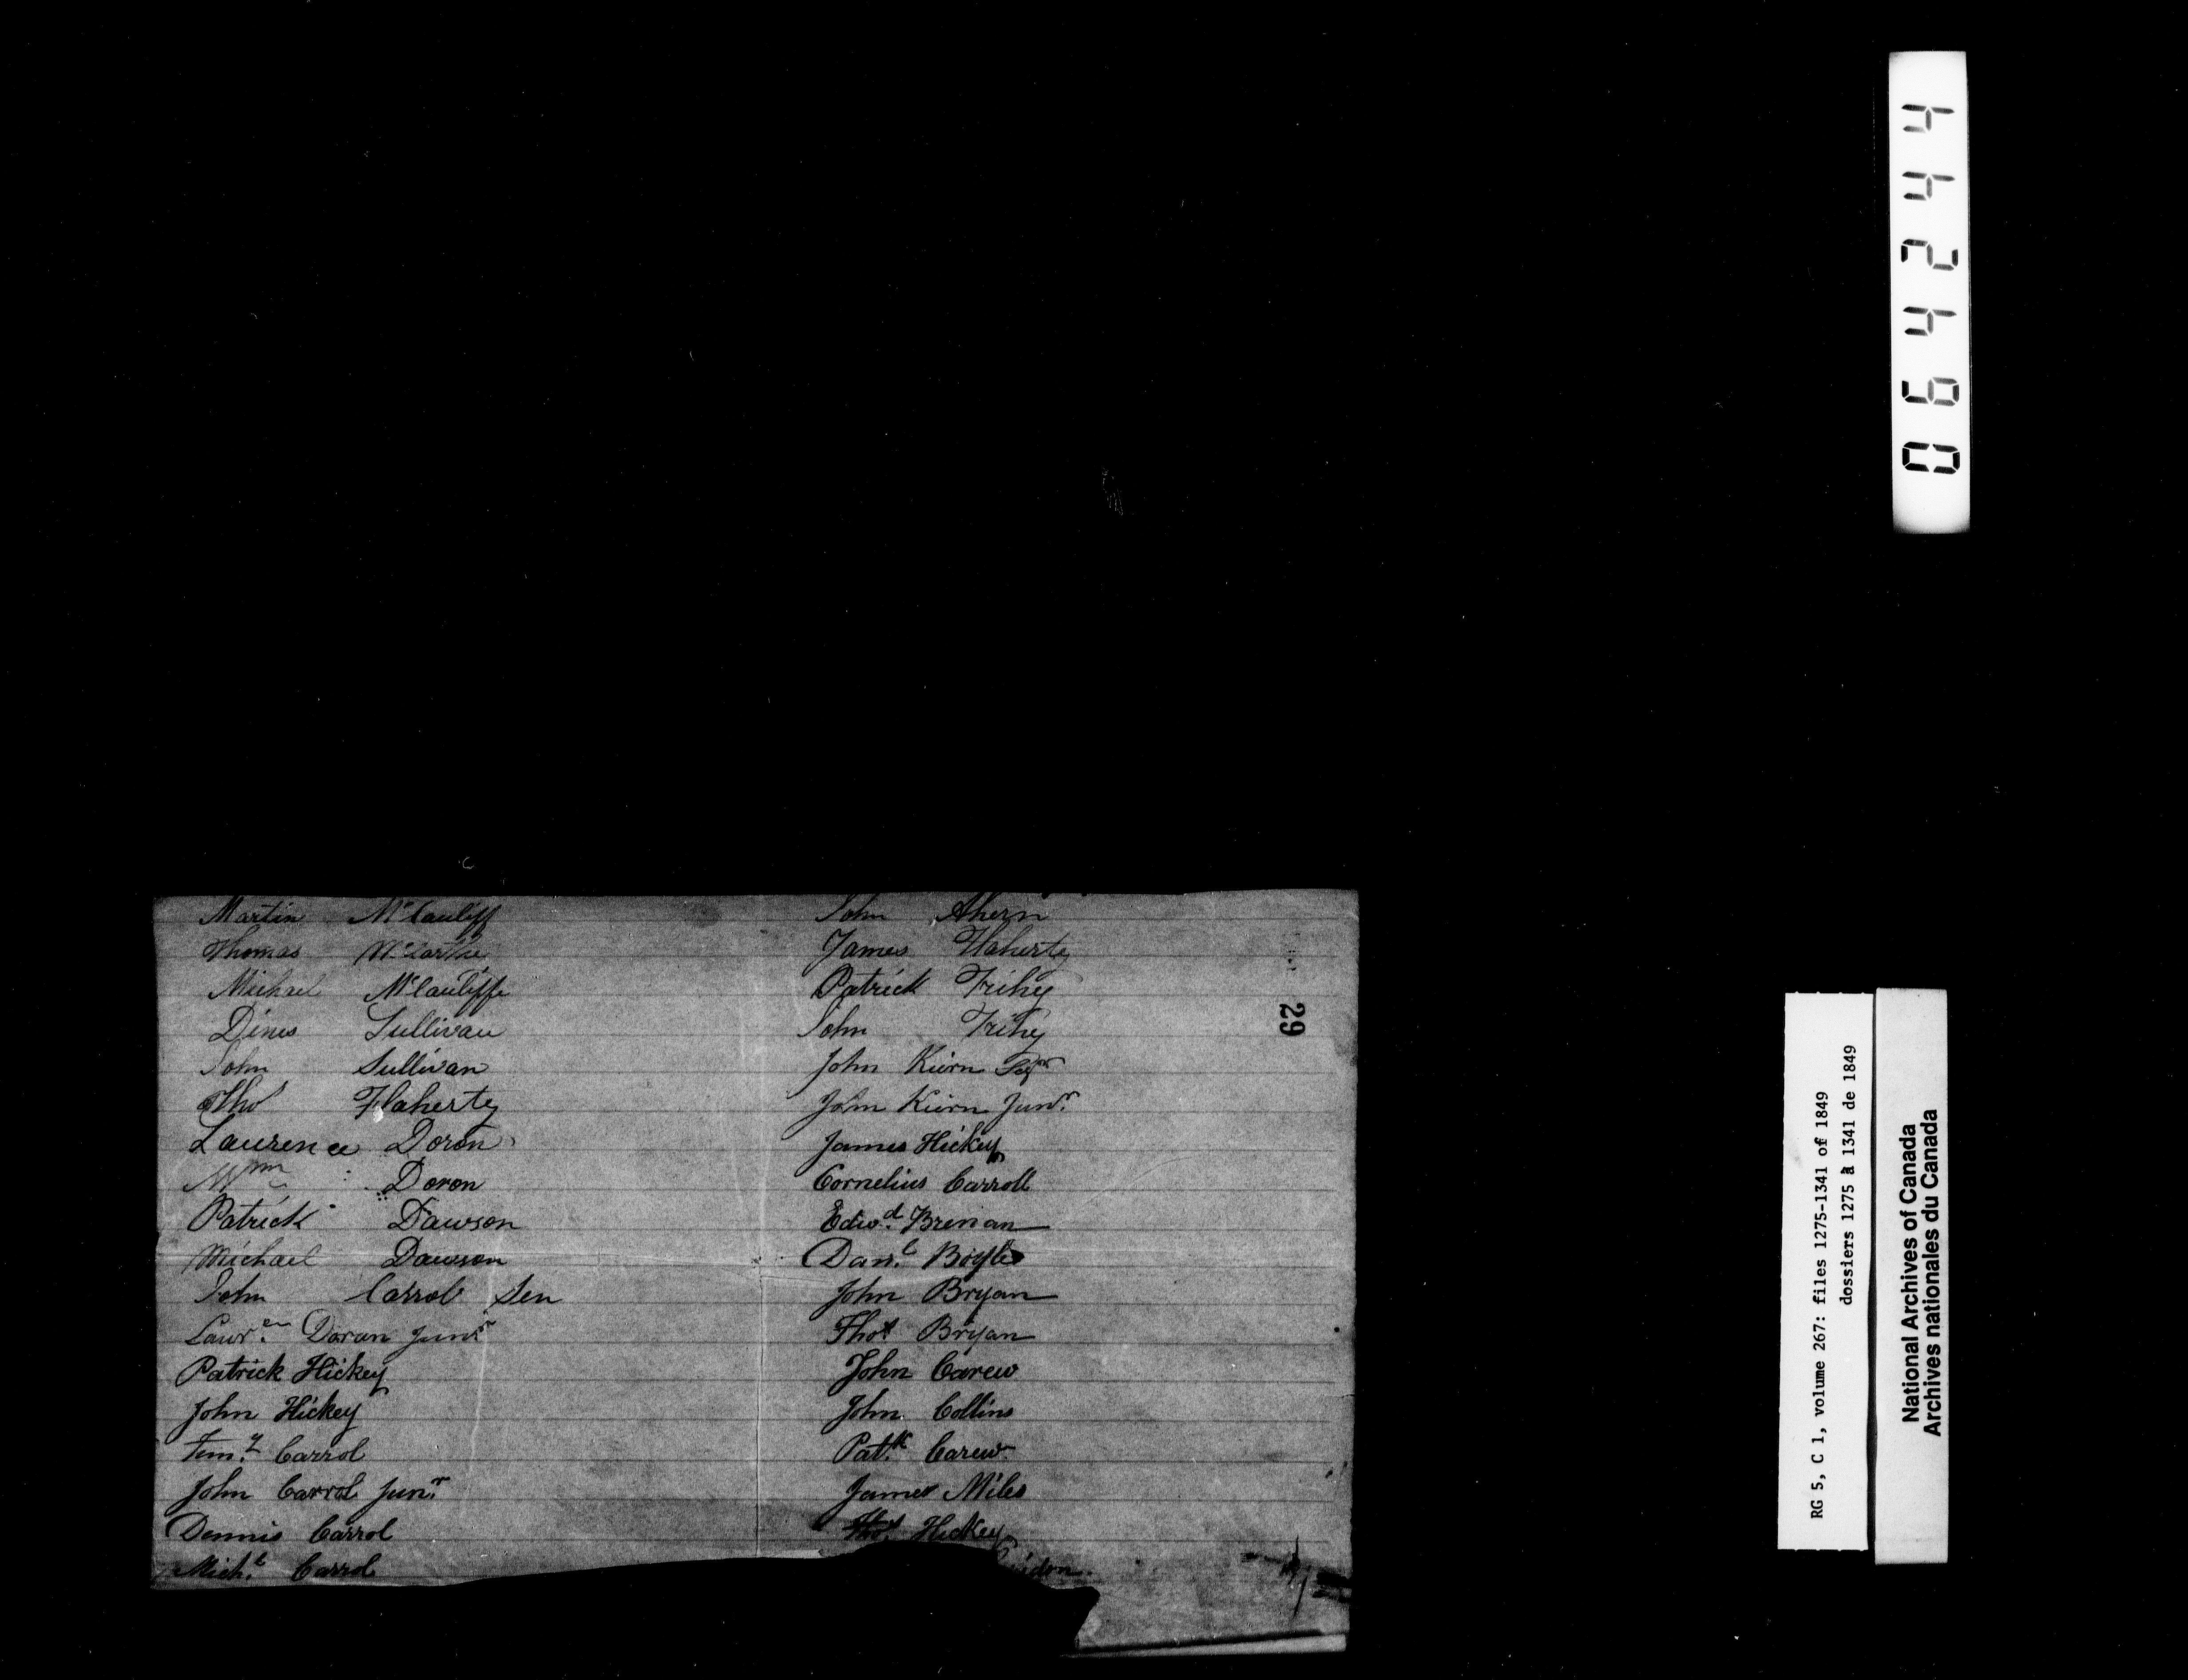 Martin McCauliff
Thomas McCartie
Michael McCauliffe
Dines Sullivan
John Sullivan
Thos Flaherty
Laurence Doron
Wm Doron
Patrick Dawson
Michael Dawson
John Carrol Sen
Lawr.en Doran Junr
Patrick Hickey
John Hickey
Tim.y Carrol
John Carrol Jun.r
Dennis Carrol
Mich.l Carrol
John Ahern
James Flaherty
Patrick Trihey
John Trihey
John Kiern
John Kiern Junr.
James Hickey
Cornelius Carroll
Edw.d Brenan
Dan.l Boyle
John Bryan
Thos. Bryan
John Carew
John Collins
Pat.k Carew
James Miles
Thos. Hickey
29
442460
RG 5, C 1, volume 267: files 1275-1341 of 1849
dossiers 1275 à 1341 de 1849
National Archives of Canada
Archives nationales du Canada